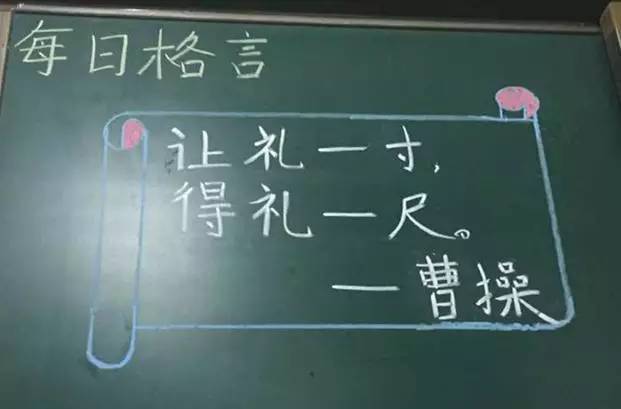 每日格言
让礼一寸,
得礼一尺。
—曹操